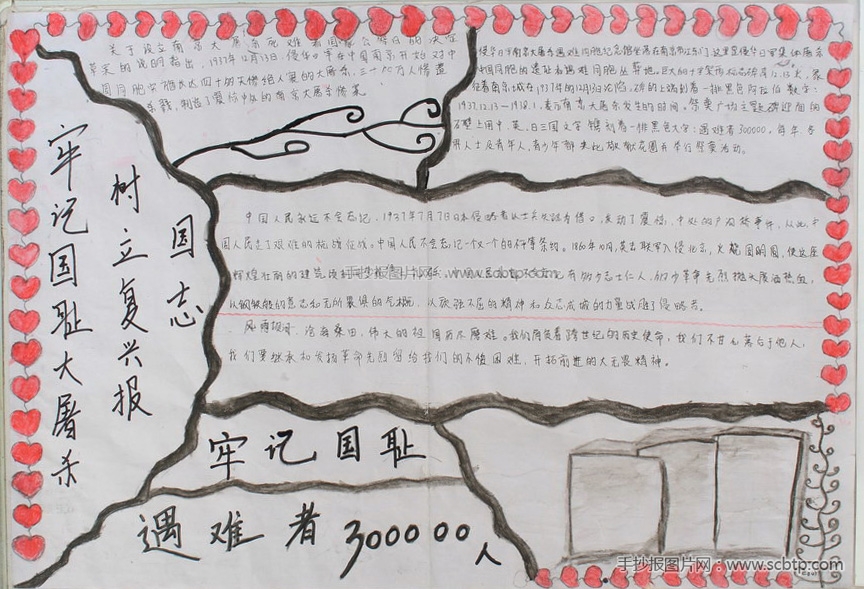 关于设立南京大屠杀死难者国家公祭日的决定
草案的说明指出，1937年12月13日，侵华日军在中国南京开始对中
国同胞实施长达四十多天惨绝人寰的大屠杀，三十多万人惨遭
杀戮，制造了震惊中外的南京大屠杀惨案
侵华日军南京大屠杀遇难同胞纪念馆坐落在南京市江东门，这里是侵华日军集体屠杀
中国同胞的遗址和遇难同胞丛葬地。巨大的十字架形标志碑高12.13米，
着南京城在1937年的12月13沦陷，碑的上端刻着一排黑色阿拉伯数字：
1937.12.13—1938.1，表示南京大屠杀发生的时间，祭奠广场
石壁上用中、英、日三国文字镌刻着一排黑色大字：遇难者300000，每年各
界人士及青年人，青少年都来此敬献花圈并举行
牢记国耻大屠杀
树立复兴报
国志
中国人民永远不会忘记，1937年7月7日日本侵略者以士兵失踪为借口，发动了震惊中外的卢沟桥事件，从此，中
国人民走了艰难的抗战征战。中国人民不会忘记一个又一个的不平等条约。1860年10月，英法联军入侵北京，火烧圆明园，使这座
辉煌壮丽的建筑 有多少志士仁人，多少革命先烈抛头颅洒热血，
以钢铁般的意志和无所畏惧的气概，以顽强不屈的精神和众志成城的力量战胜了侵略者。
风雨
沧海桑田，伟大的祖国历尽磨难。我们肩负着跨世纪的历史使命，我们不甘心落后于他人，
我们要继承和发扬革命先烈留给我们的不惧困难，开拓前进的大无畏精神。
手抄报图片网：www.scbtp.com
牢记国耻
遇难者300000人
手抄报图片网：www.scbtp.com